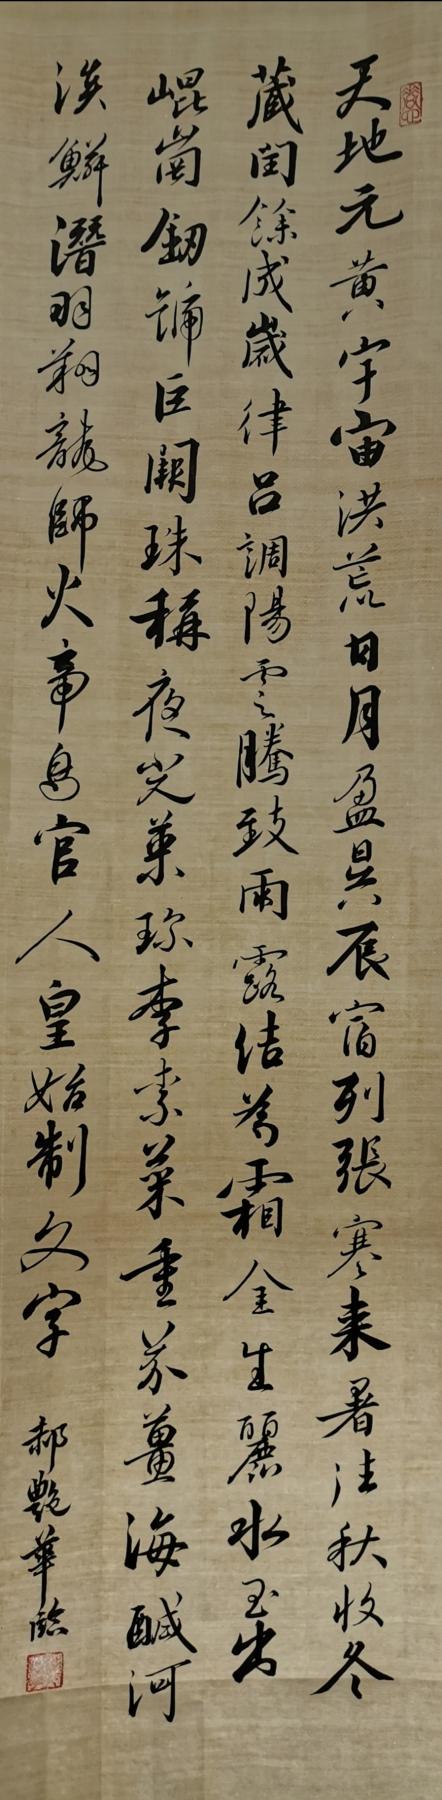 天地元黃宇宙洪荒日月盈昃辰宿列張寒来暑往秋收冬
藏閏餘成歲律呂調陽雲騰致雨露結為霜金生麗水玉出
崐崗劒號巨闕珠稱夜光菓珍李柰菜重芥薑海鹹河
淡鱗潛羽翔龍師火帝鳥官人皇始制文字
郝艷華臨